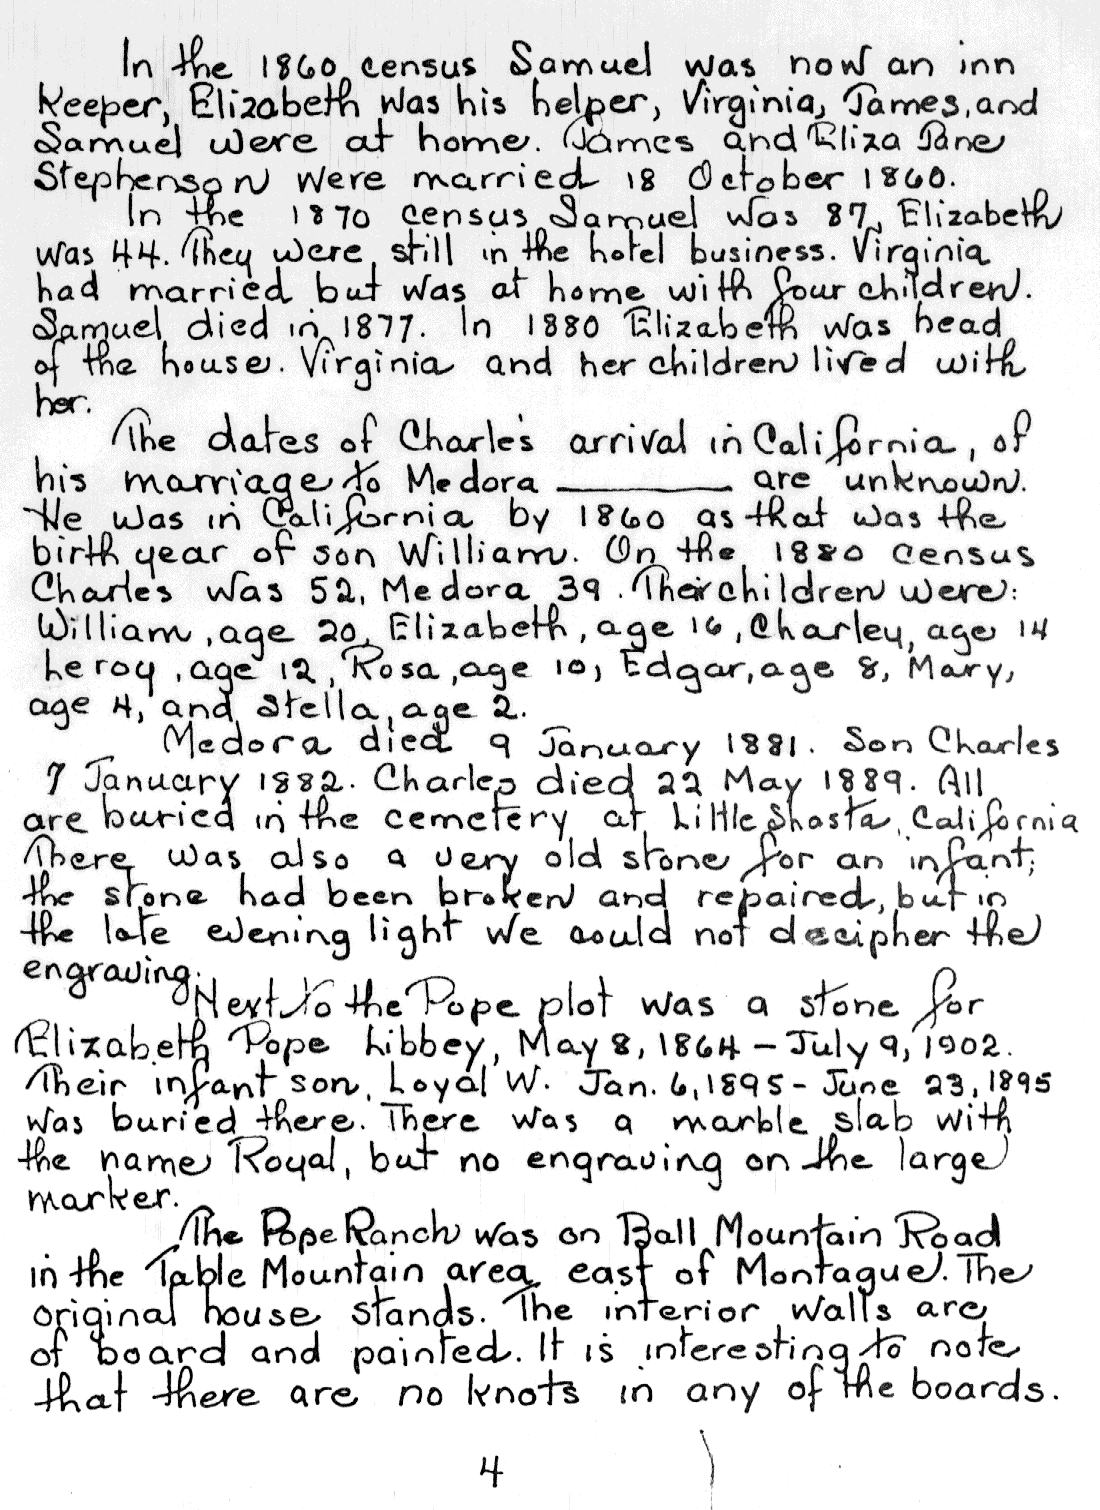 In the 1860 census Samuel was now an inn
Keeper, Elizabeth was his helper, Virginia, James, and
Samuel were at home. James and Eliza Jane
Stephenson were married 18 October 1860.
In the 1870 census Samuel was 87, Elizabeth
was 44. They were still in the hotel business. Virginia
had married but was at home with four children.
Samuel died in 1877. In 1880 Elizabeth was head
of the house. Virginia and her children lived with
her.
The dates of Charle's arrival in California, of
his marriage to Medora ________ are unknown.
He was in California by 1860 as that was the
birth year of son William. On the 1880 census
Charles was 52, Medora 39. Their children were:
William, age 20, Elizabeth, age 16, Charley, age 14
Leroy, age 12, Rosa, age 10, Edgar, age 8, Mary,
age 4, and Stella, age 2.
Medora died 9 January 1881. Son Charles
7 January 1882. Charles died 22 May 1889. All
are buried in the cemetery at Little Shasta, California
There was also a very old stone for an infant;
the stone had been broken and repaired, but in
the late evening light we could not decipher the
engraving.
Next to the Pope plot was a stone for
Elizabeth Pope Libbey, May 8, 1864 - July 9, 1902.
Their infant son, Loyal W. Jan. 6, 1895 - June 23, 1895
was buried there. There was a marble slab with
the name Royal, but no engraving on the large
marker.
The Pope Ranch was on Ball Mountain Road
in the Table Mountain area, east of Montague. The
original house stands. The interior walls are
of board and painted. It is interesting to note
that there are no knots in any of the boards.
4